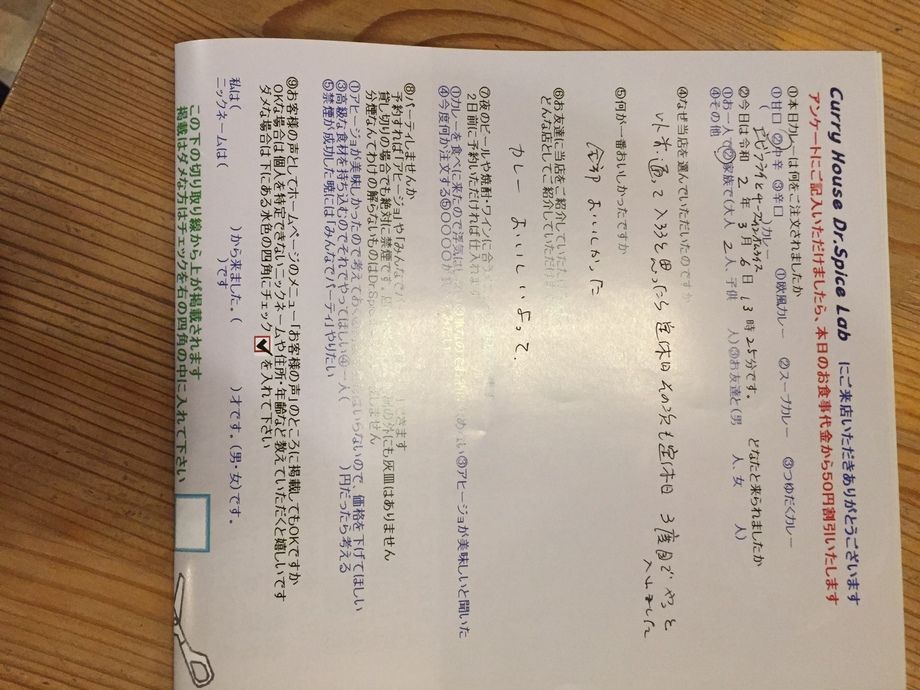 Curry House Dr.Spice Lab にご来店いただきありがとうございます
アンケートにご記入いただけましたら、本日のお食事代金から50円割引いたします
①本日カレーは何をご注文されましたか
①甘口 ②中辛 ③辛口 ①欧風カレー ②スープカレー ③つゆだくカレー
②今日は令和 2 年 3 月 6 日 13 時 25 分です。 どなたと来られましたか
①お一人で ②家族で(大人 2 人、子供 人) ③お友達と(男 人、女 人)
④その他
④なぜ当店を選んでいただいたのですか
以前通って入ろうと思ったら定休日 その次も定休日 3度目でやっと
入れました
⑤何が一番おいしかったですか
全部 おいしかった
⑥お友達に当店をご紹介して
どんな店としてご紹介していただけ
カレー おいしいよって。
⑦夜のビールや焼酎・ワインに合う
2日前に予約いただければ仕入れ
①カレーを食べに来たので浮気は ③アヒージョが美味しいと聞いた
④今度何か注文する ⑤〇〇〇〇が
⑧パーティしませんか
予約すれば「アヒージョ」や「みんなで
貸し切りの場合でも絶対に禁煙です。 の外にも灰皿はありません
分煙なんてわけの解らないものはDr.Sp しません
①アヒージョが美味しかったので考えてお はいらないので、価格を下げてほしい
③高級な食材を持ち込むのでそれでやってほしい ④一人( )円だったら考える
⑤禁煙が成功した暁には「みんなでパーティ」やりたい
⑨お客様の声としてホームページのメニュー「お客様の声」のところに掲載してもOKですか
OKな場合は個人を特定できないニックネームや住所・年齢など教えていただくと嬉しいです
ダメな場合は下にある水色の四角にチェック を入れて下さい
私は( )から来ました。( )才です。(男・女)です。
ニックネームは( )です
この下の切り取り線から上が掲載されます
掲載はダメな方はチェックを右の四角の中に入れて下さい